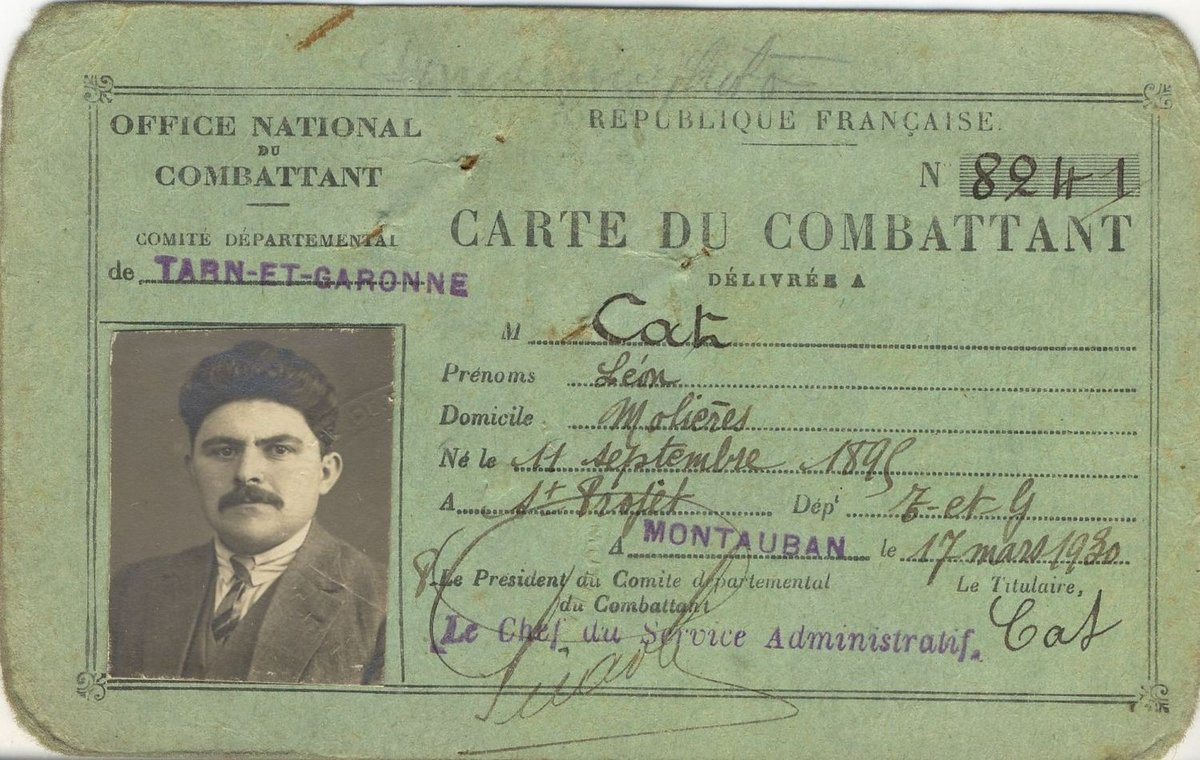 OFFICE NATIONAL
DU
COMBATTANT
COMITÉ DÉPARTEMENTAL
de TARN-ET-GARONNE
RÉPUBLIQUE FRANÇAISE.
N° 8241
CARTE DU COMBATTANT
DÉLIVRÉE A
M Cat
Prénoms Léon
Domicile Molières
Né le 11 septembre 1895
A St Projet Dépt T-et-G
A MONTAUBAN le 17 mars 1930
Le Président du Comité départemental
du Combattant
Le Titulaire,
Le Chef du Service Administratif.
Cat